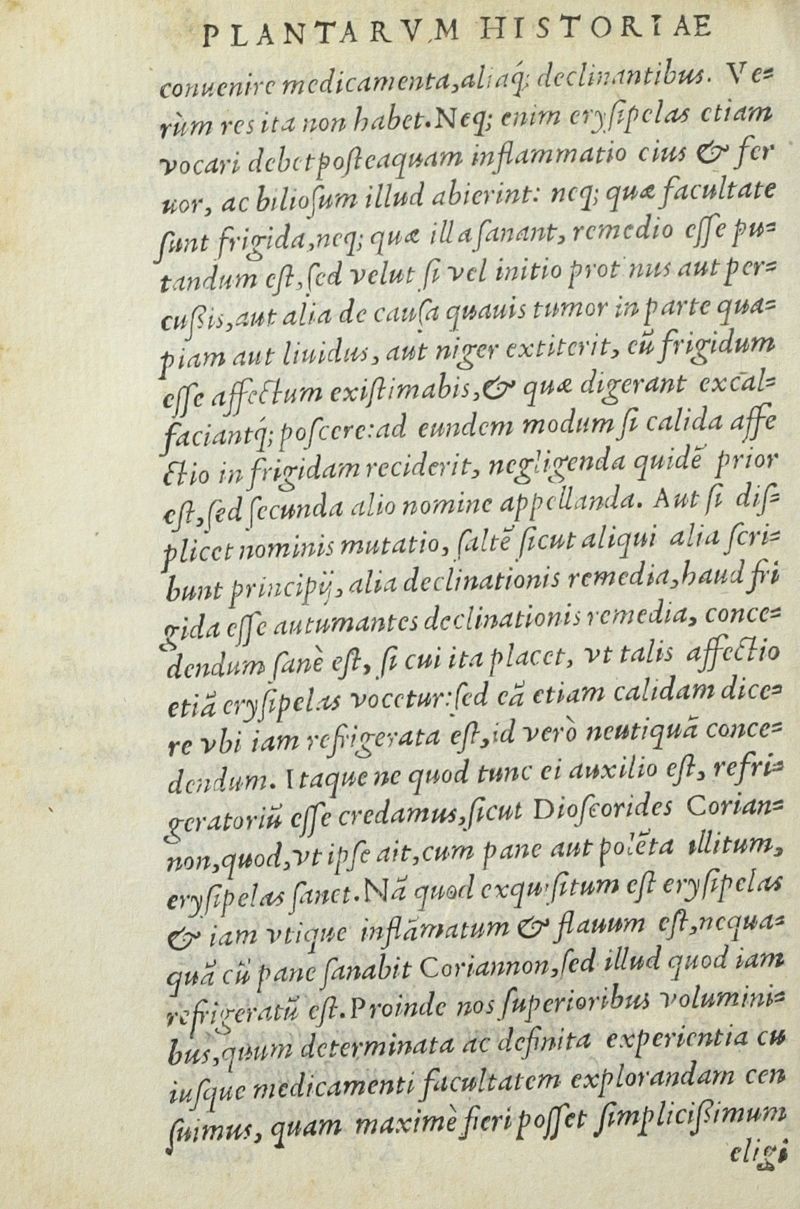 PLANTARVM HISTORIAE
conuenire medicamenta, aliaq́; declinantibus. Ve⸗
rùm res ita non habet. Neq; enim eryſipelas etiam
vocari debet poſteaquam inflammatio eius & fer
uor, ac bilioſum illud abierint: neq; quæ facultate
ſunt frigida, neq; quæ illa ſanant, remedio eſſe pu⸗
tandum eſt, ſed velut ſi vel initio protinus aut per⸗
cuſſis, aut alia de cauſa quauis tumor in parte qua⸗
piam aut liuidus, aut niger extiterit, eū frigidum
eſſe affectum exiſtimabis, & quæ digerant excal⸗
faciantq́; poſcere: ad eundem modum ſi calida affe
ctio in frigidam reciderit, negligenda quidē prior
eſt, ſed ſecunda alio nomine appellanda. Aut ſi diſ⸗
plicet nominis mutatio, ſaltē ſicut aliqui alia ſcri⸗
bunt principij, alia declinationis remedia, haud fri
gida eſſe autumantes declinationis remedia, conce⸗
dendum ſanè eſt, ſi cui ita placet, vt talis affectio
etiā eryſipelas vocetur: ſed eā etiam calidam dice⸗
re vbi iam refrigerata eſt, id verò neutiquā conce⸗
dendum. Itaque ne quod tunc ei auxilio eſt, refri⸗
geratoriū eſſe credamus, ſicut Dioſcorides Corian⸗
non, quod, vt ipſe ait, cum pane aut polēta illitum,
eryſipelas ſanet. Nā quod exquiſitum eſt eryſipelas
& iam vtique inflāmatum & flauum eſt, nequa⸗
quā cū pane ſanabit Coriannon, ſed illud quod iam
refrigeratū eſt. Proinde nos ſuperioribus volumini⸗
bus, quum determinata ac definita experientia cu
iuſque medicamenti facultatem explorandam cen
ſuimus, quam maximè fieri poſſet ſimpliciſſimum
eligi